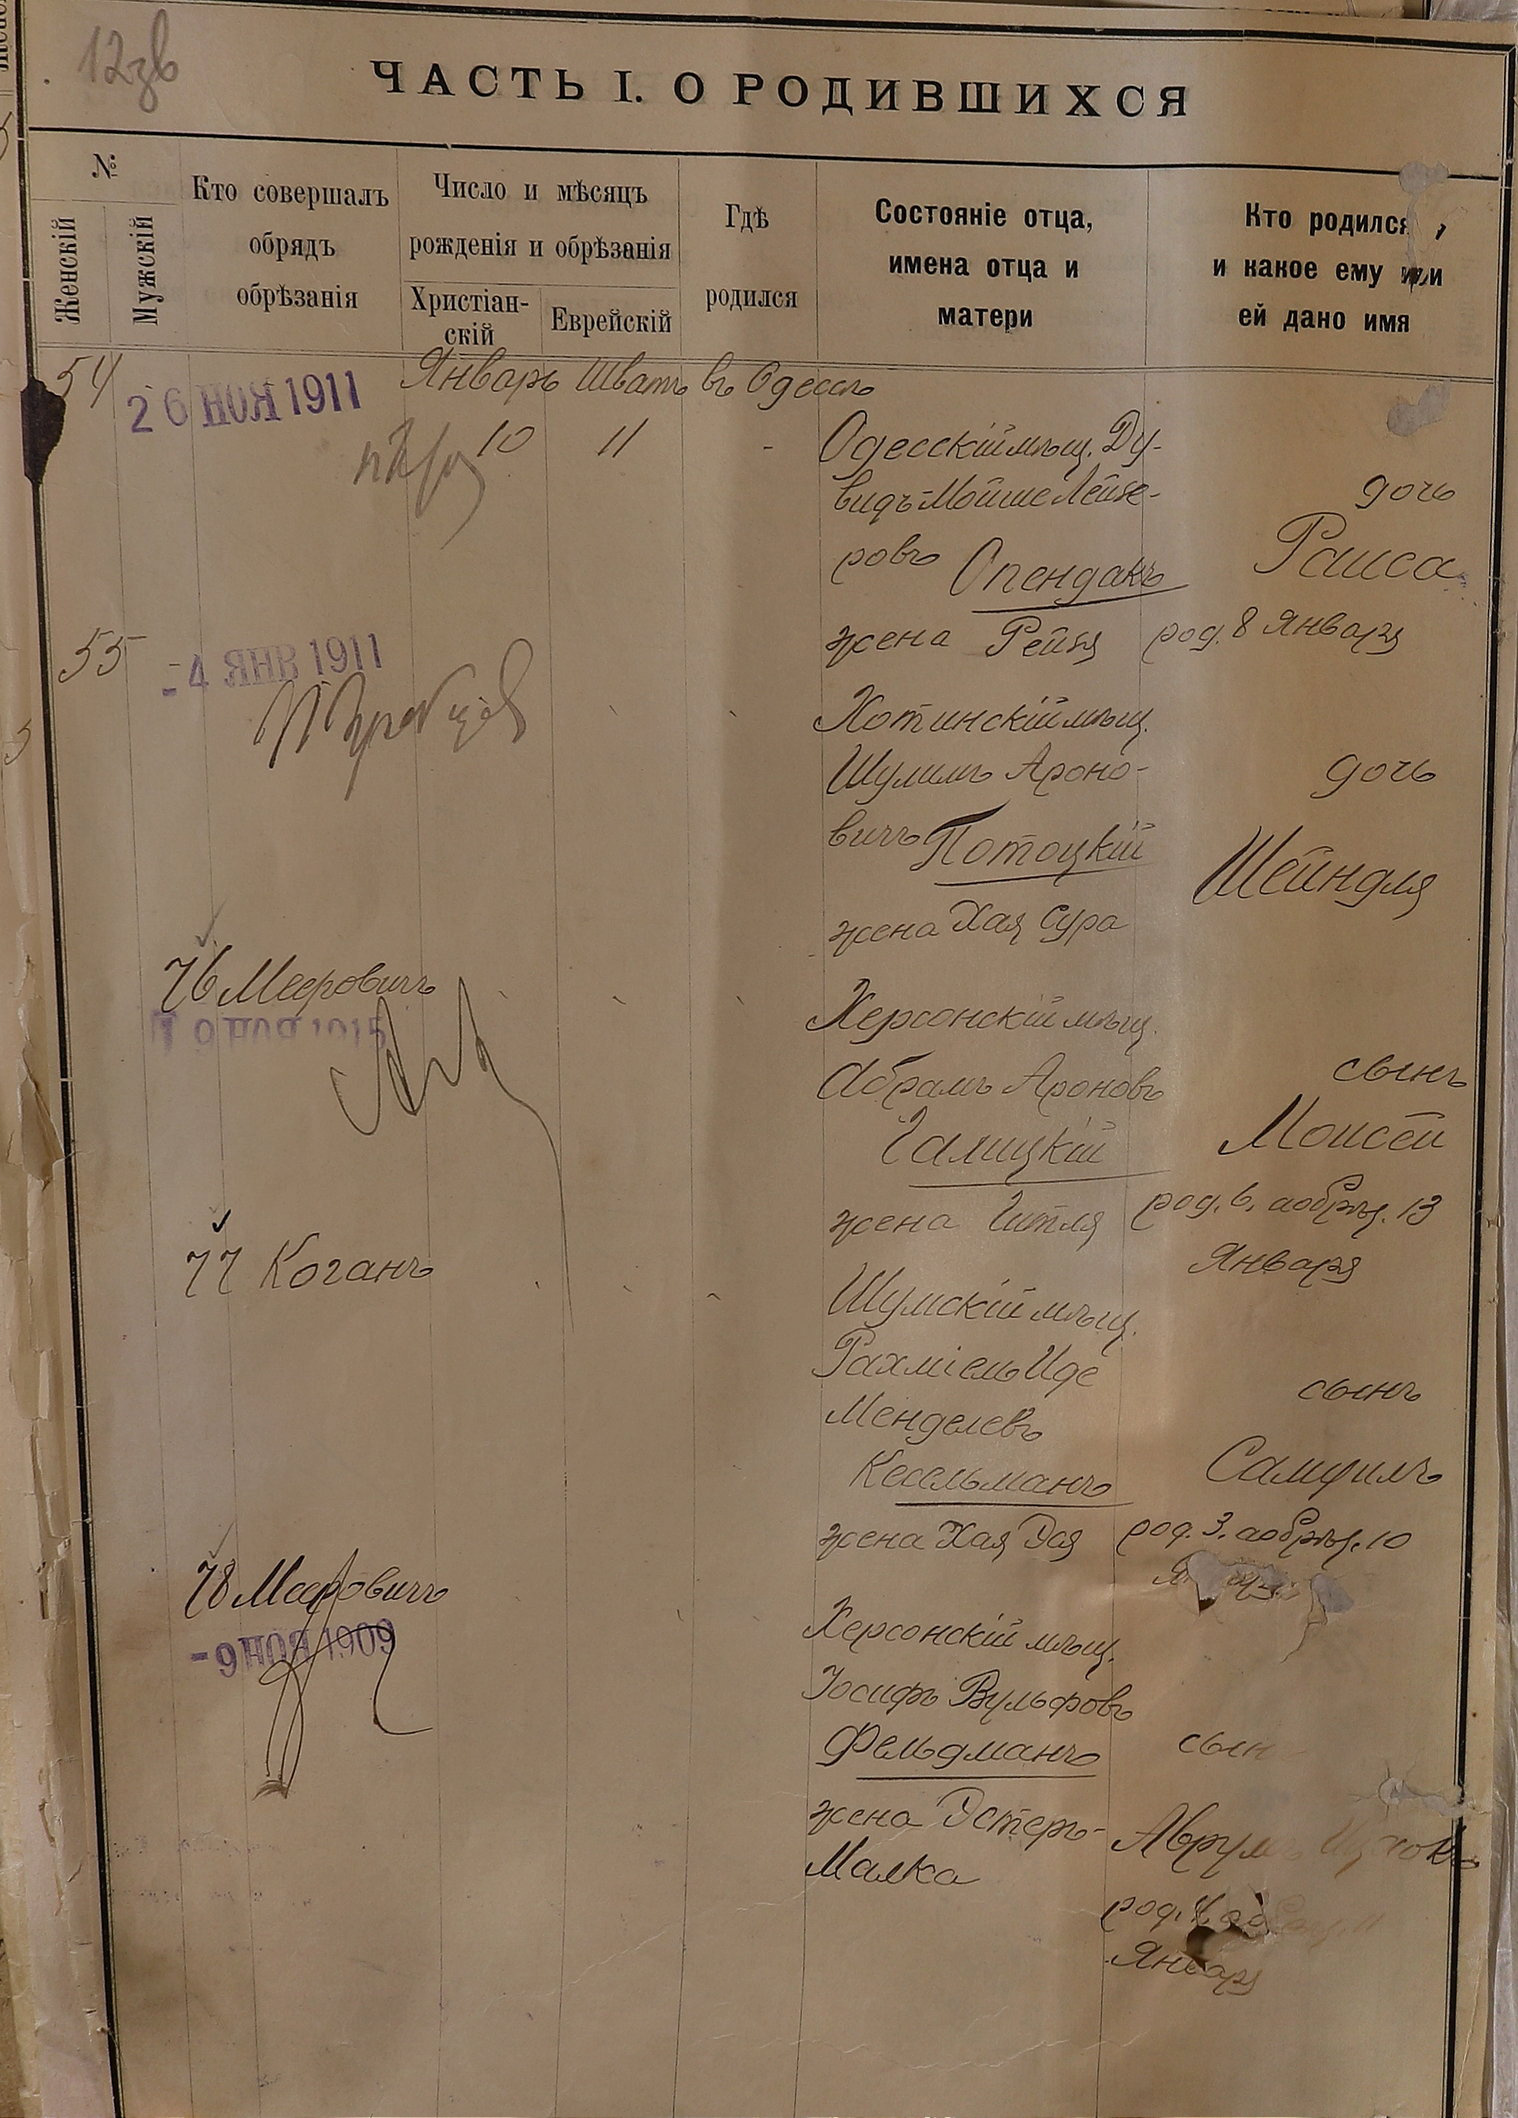 12зв
ЧАСТЬ I. О РОДИВШИХСЯ
№
Женскій
Мужскій
Кто совершалъ
обрядъ
обрѣзанія
Число и мѣсяцъ
рожденія и обрѣзанія
Христіан-
скій
Еврейскій
Гдѣ
родился
Состояніе отца,
имена отца и
матери
Кто родился,
и какое ему или
ей дано имя
54
26 НОЯ 1911
Январь Шватъ въ Одессѣ
10 11 -
Одесскій мѣщ. Ду-
видъ-Мойше Лейзе-
ровъ Опендакъ
жена Рейзя
дочь
Раиса
род. 8 Января
55
-4 ЯНВ 1911
Хотинскій мѣщ.
Шулимъ Ароно-
вичъ Потоцкій
жена Хая Сура
дочь
Шейндля
76 Мееровичъ
19 НОЯ 1915
Херсонскій мѣщ.
Абрамъ Ароновъ
Галицкій
жена Гитля
сынъ
Моисей
род. 6. а обрѣз. 13
Января
77 Коганъ
Шумскій мѣщ.
Рахміель Иде
Менделевъ
Кесельманъ
жена Хая Эся
сынъ
Самуилъ
род. 3. а обрѣз. 10
78 Мееровичъ
-9 НОЯ 1909
Херсонскій мѣщ.
Іосифъ Вульфовъ
Фельдманъ
жена Эстеръ-
Малка
сын
Аврумъ Ицхокъ
род. 4. а обрѣз. 11
Января